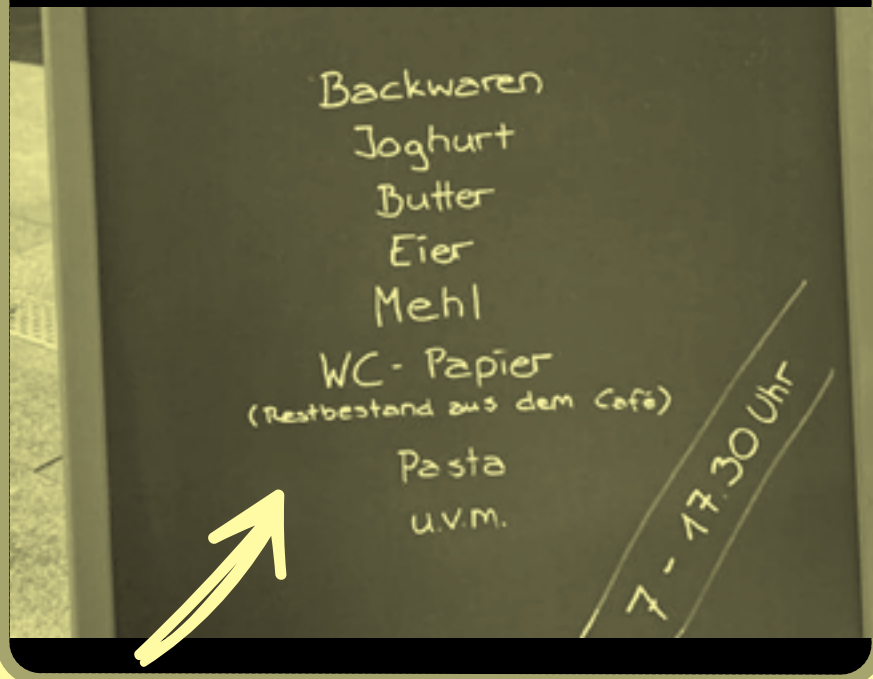 Backwaren
Joghurt
Butter
Eier
Mehl
WC-Papier
(Restbestand aus dem Café)
Pasta
u.v.m.
7 - 17.30 Uhr